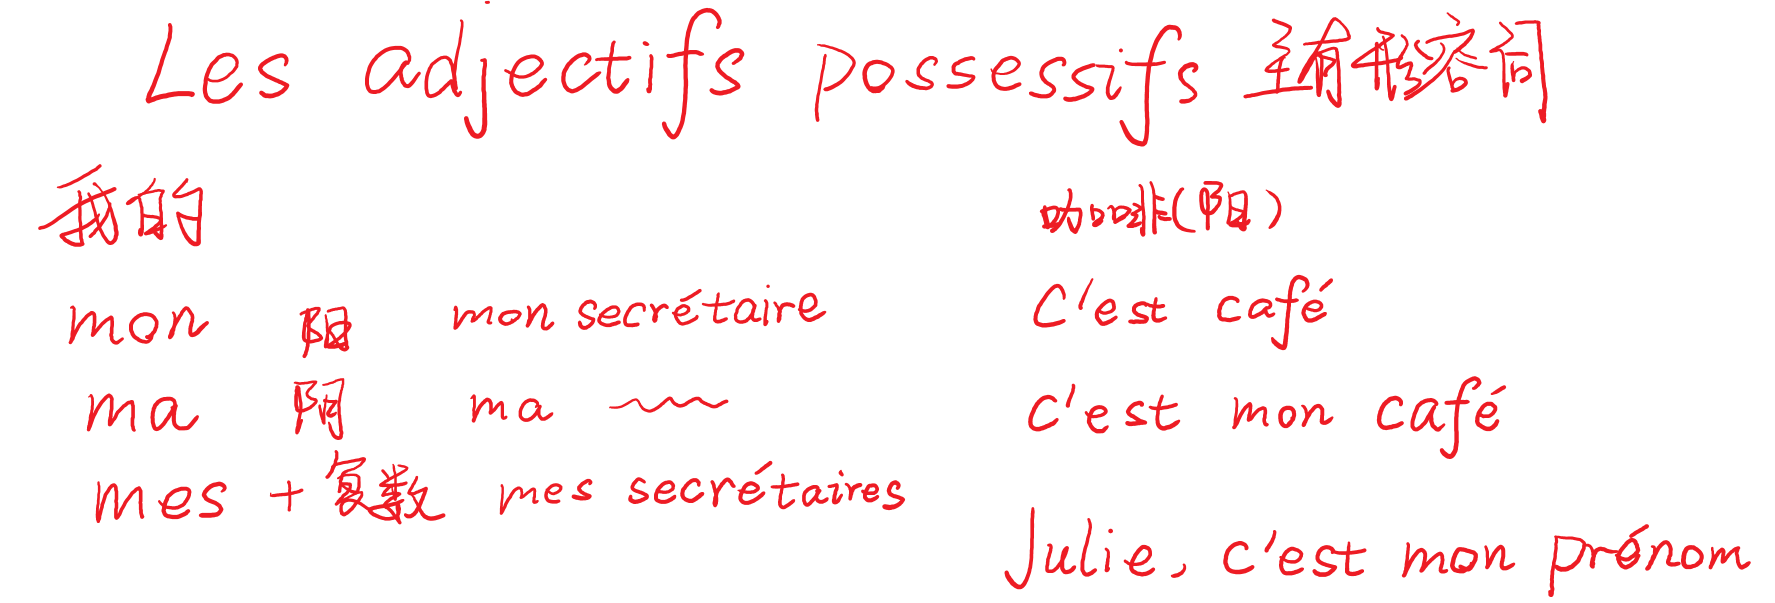 Les adjectifs possessifs 主有形容词
我的
mon 阳 mon secrétaire
ma 阴 ma
mes + 复数 mes secrétaires
咖啡(阳)
C'est café
C'est mon café
Julie, c'est mon prénom